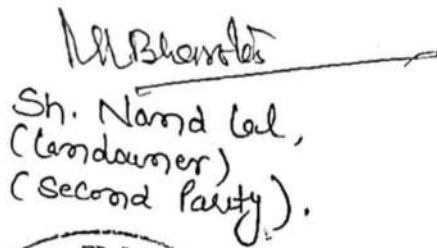 Sh. Nand Lal,
(Landowner)
(Second Party).